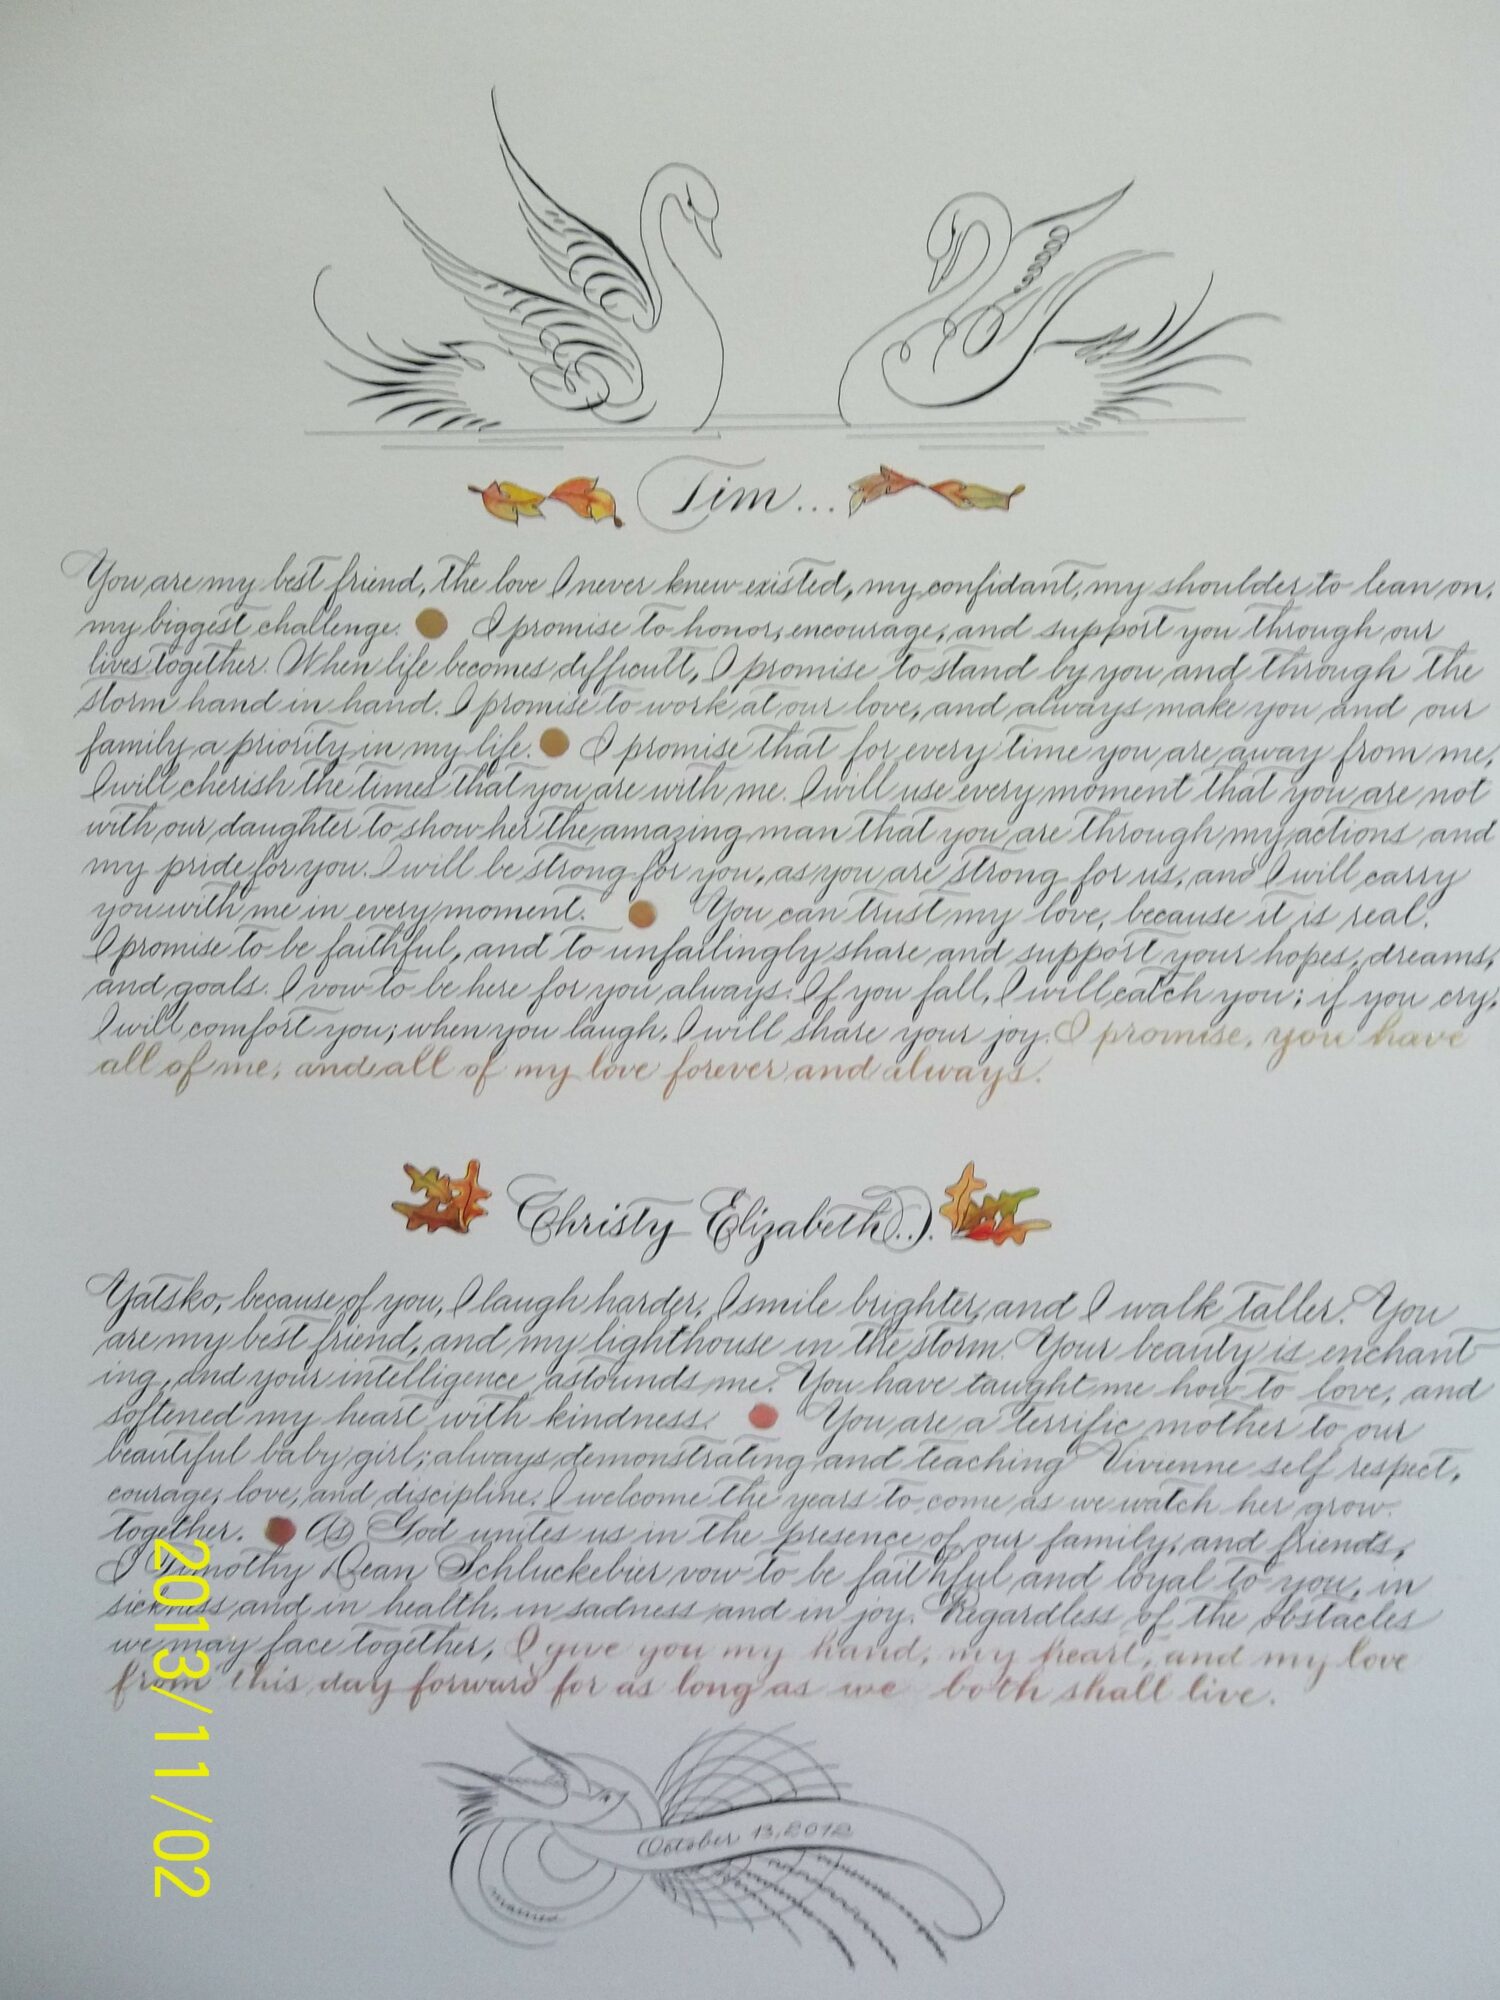 Tim...
You are my best friend, the love I never knew existed, my confidant, my shoulder to lean on,
my biggest challenge. I promise to honor, encourage, and support you through our
lives together. When life becomes difficult, I promise to stand by you and through the
storm hand in hand. I promise to work at our love, and always make you and our
family a priority in my life. I promise that for every time you are away from me,
I will cherish the times that you are with me. I will use every moment that you are not
with our daughter to show her the amazing man that you are through my actions and
my pride for you. I will be strong for you, as you are strong for us, and I will carry
you with me in every moment. You can trust my love, because it is real.
I promise to be faithful, and to unfailingly share and support your hopes, dreams,
and goals. I vow to be here for you always. If you fall, I will catch you; if you cry,
I will comfort you; when you laugh, I will share your joy. I promise, you have
all of me, and all of my love forever and always.
Christy Elizabeth...
Yatsko, because of you, I laugh harder, I smile brighter, and I walk taller. You
are my best friend, and my lighthouse in the storm. Your beauty is enchant
ing, and your intelligence astounds me. You have taught me how to love, and
softened my heart with kindness. You are a terrific mother to our
beautiful baby girl; always demonstrating and teaching Vivienne self respect,
courage, love, and discipline. I welcome the years to come as we watch her grow
together. As God unites us in the presence of our family, and friends,
I Timothy Dean Schluckebier vow to be faithful and loyal to you, in
sickness and in health, in sadness and in joy. Regardless of the obstacles
we may face together, I give you my hand, my heart, and my love
from this day forward for as long as we both shall live.
October 13, 2012
married
2013/11/02